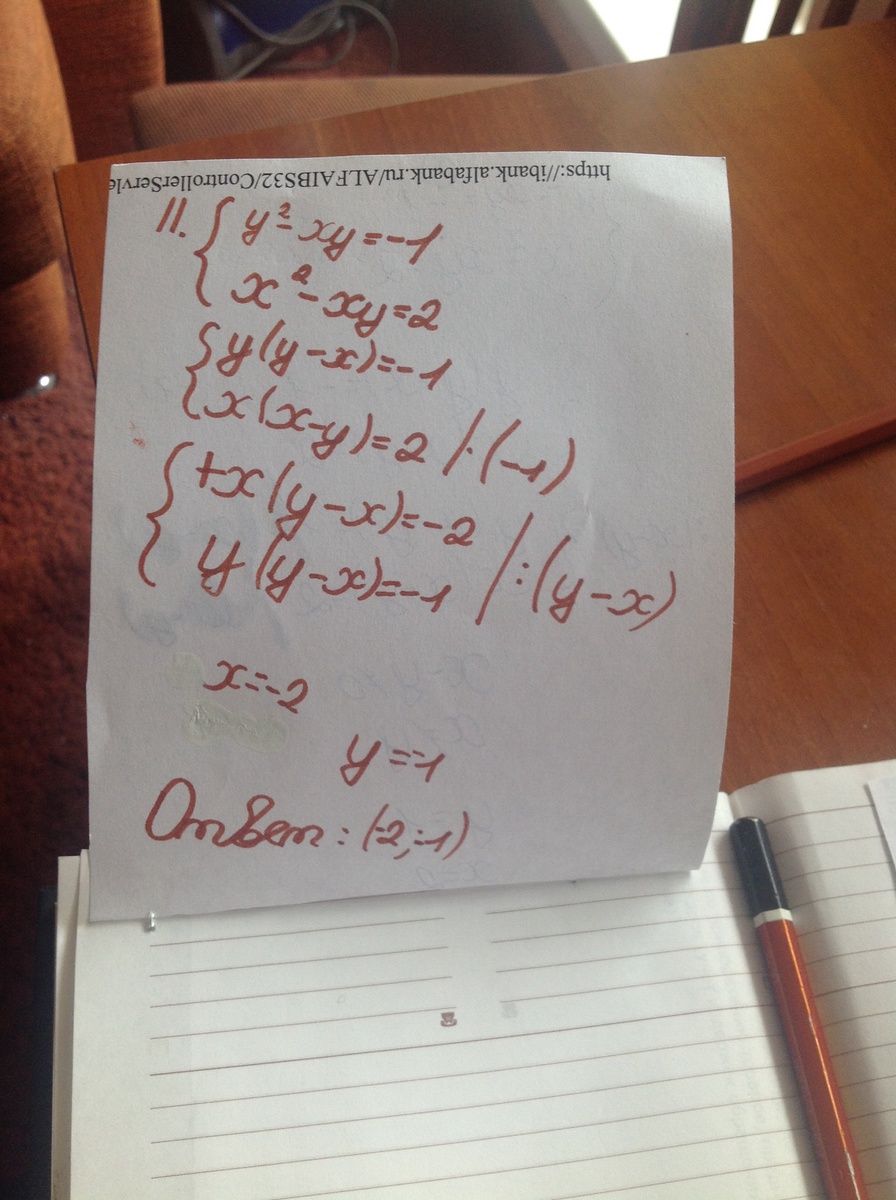 https://ibank.alfabank.ru/ALFAIBS32/ControllerServle
11. { y² - xy = -1
x² - xy = 2
{ y(y-x) = -1
x(x-y) = 2 / · (-1)
{ +x(y-x) = -2
y(y-x) = -1 / : (y-x)
x = -2
y = -1
Ответ: (-2; -1)